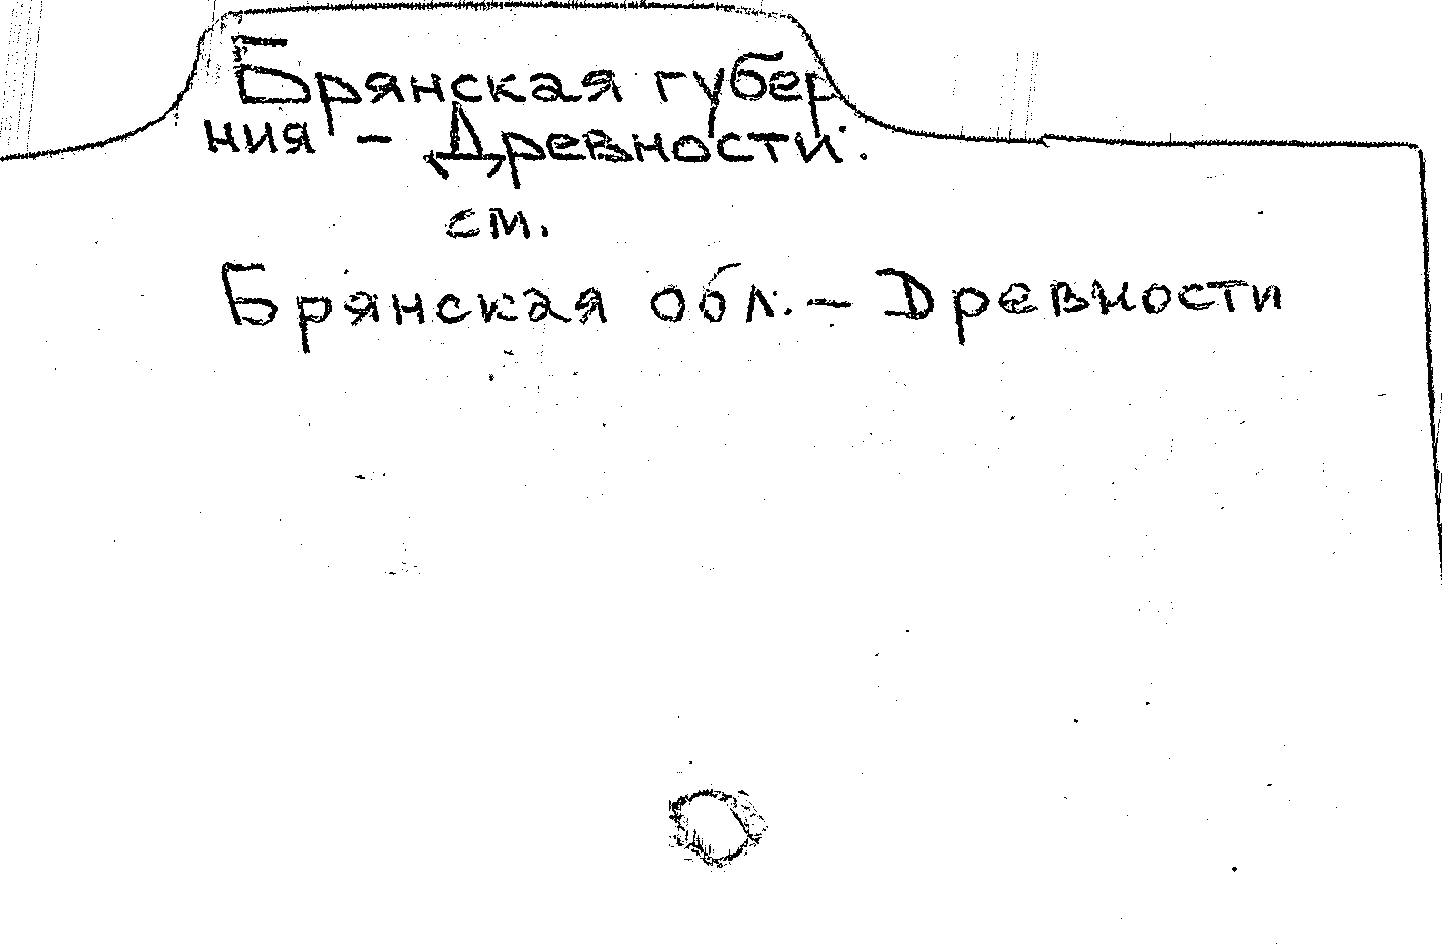 Брянская губер
ния - Древности.
см.
Брянская обл. - Древности